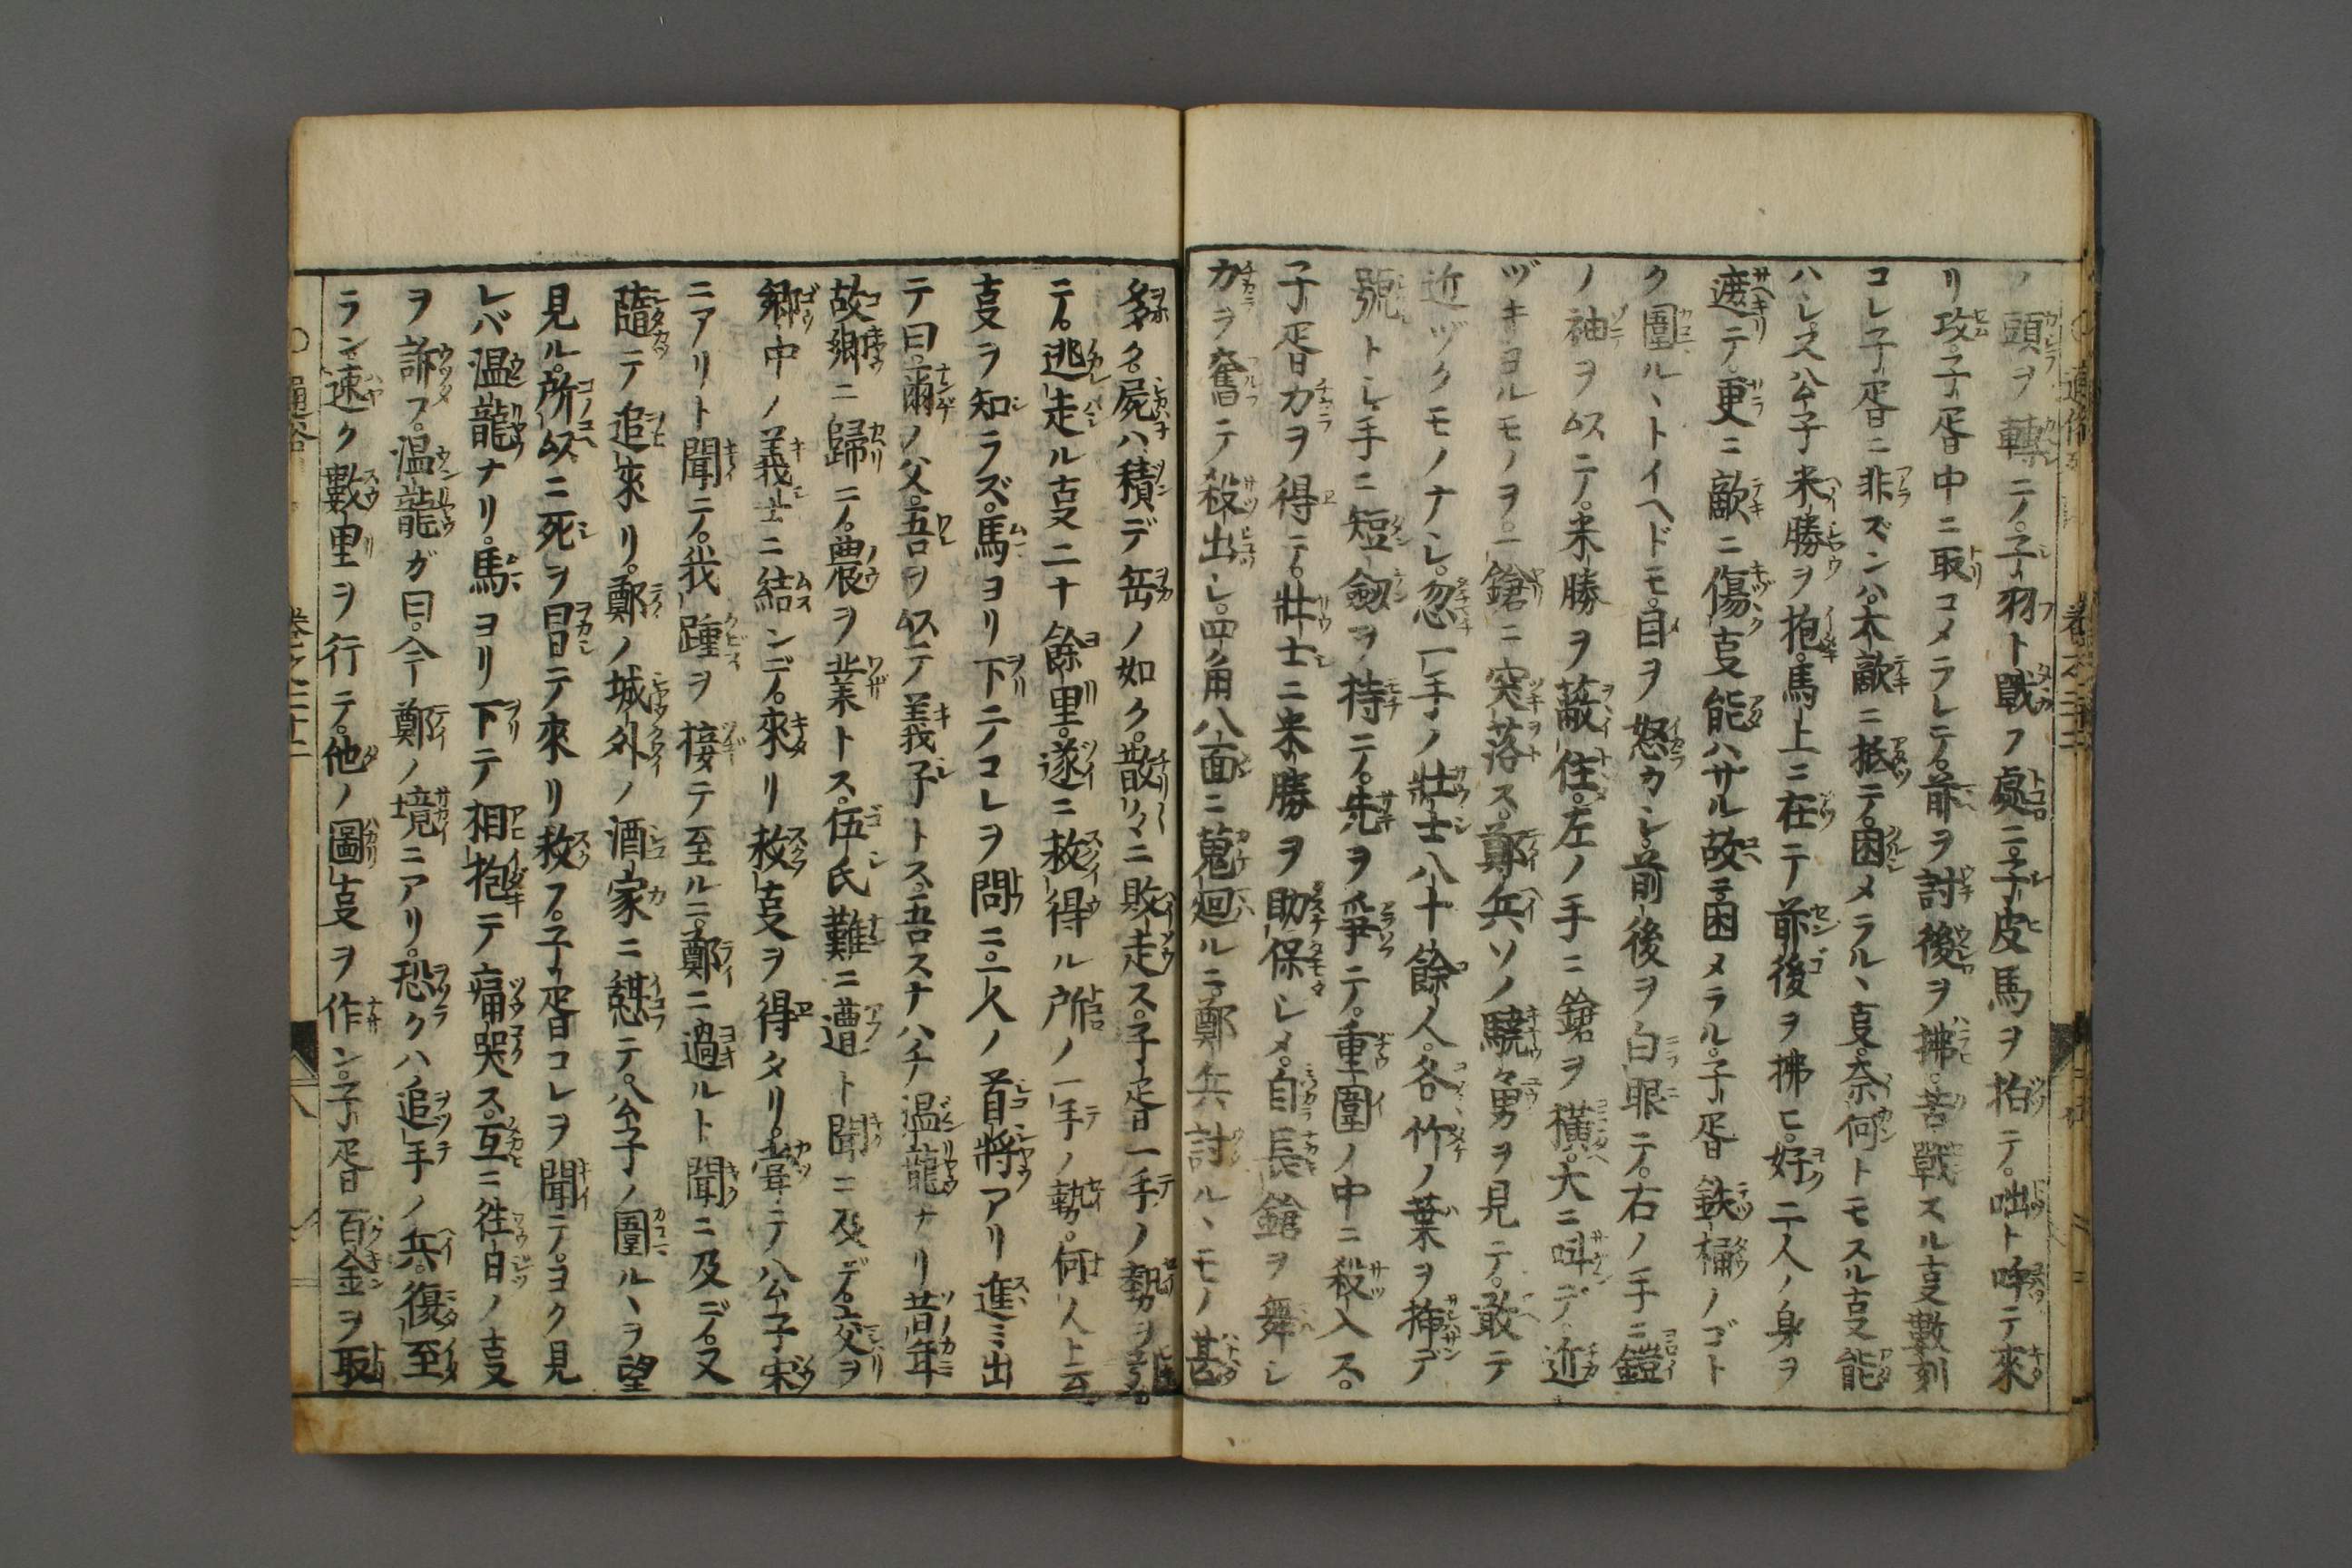 ノ頭ヲ轉シテ。子羽ト戰フ處ニ。子皮馬ヲ拍テ。咄ト呼テ來
リ攻。子胥中ニ取コメラレテ。前ヲ討後ヲ拂。苦戰スル㕝數刻
コレ子胥ニ非ズンハ。大敵ニ抵テ。困メラルヽ㕝。奈何トモスル㕝能
ハレス。公子米勝ヲ抱。馬上ニ在テ前後ヲ拂ヒ。好二人ノ身ヲ
遮テ。更ニ敵ニ傷㕝能ハザル故ニ。困メラル。子胥鉄桶ノゴト
ク圍ルヽトイヘドモ。目ヲ怒カシ。前後ヲ白眼テ。右ノ手ニ鎧
ノ袖ヲ以テ。米勝ヲ蔽住。左ノ手ニ鎗ヲ横。大ニ叫デ近
ヅキヨルモノヲ。一鎗ニ突落ス。鄭兵ソノ驍勇ヲ見テ。敢テ
近ヅクモノナシ。忽一手ノ壯士八十餘人。各竹ノ葉ヲ插デ
號トシ手ニ短劔ヲ持テ。先ヲ爭テ。重圍ノ中ニ殺入ス。
子胥力ヲ得テ。壯士ニ米勝ヲ助保シメ。自長鎗ヲ舞シ
力ヲ奮テ殺出シ。四角八面ニ蒐廻ルニ。鄭兵討ルヽモノ甚
多ク。屍ハ積デ岳ノ如ク。散〻ニ敗走ス。子胥一手ノ勢ヲ
テ。逃走ル㕝二十餘里。遂ニ救得ル所ノ一手ノ勢。何人ト云
㕝ヲ知ラズ。馬ヨリ下テコレヲ問ニ。一人ノ首將アリ進ミ出
テ曰。爾ノ父。吾ヲ以テ義子トス。吾スナハチ温龍ナリ昔年
故郷ニ歸テ。農ヲ業トス。伍氏難ニ遭ト聞ニ及デ。交ヲ
郷中ノ義士ニ結ンデ。來リ救㕝ヲ得タリ。嘗テ公子宋
ニアリト聞テ。我踵ヲ接テ至ルニ。鄭ニ過ルト聞ニ及デ。又
隨テ追來リ。鄭ノ城外ノ酒家ニ憩テ。公子ノ圍ルヽヲ望
見ル。所以ニ死ヲ冒テ來リ救フ。子胥コレヲ聞テ。ヨク見
レバ温龍ナリ。馬ヨリ下テ相抱テ痛哭ス。互ニ往日ノ㕝
ヲ訴フ。温龍ガ曰。今鄭ノ境ニアリ。恐クハ追手ノ兵。復至
ラン。速ク數里ヲ行テ。他ノ圖㕝ヲ作ン。子胥百金ヲ取